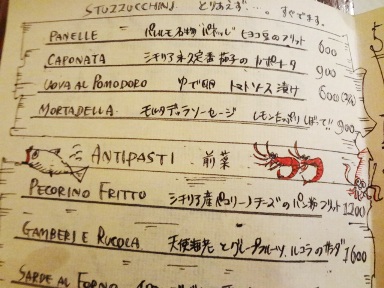 STUZZUCCHINI とりあえず…。すぐでます。
PANELLE パレルモ名物 "パネッレ" ヒヨコ豆のフリット 600
CAPONATA シチリア 永久定番 茄子のカポナータ 900
UOVA AL POMODORO ゆで卵 トマトソース漬け 600
MORTADELLA モルタデッラソーセージ レモンたっぷりしぼって!! 900
ANTIPASTI 前菜
PECORINO FRITTO シチリア産ペコリーノチーズのパン粉フリット 1200
GAMBERI E RUCOLA 天使海老とグレープフルーツ、ルコラのサラダ 1600
SARDE AL FORNO